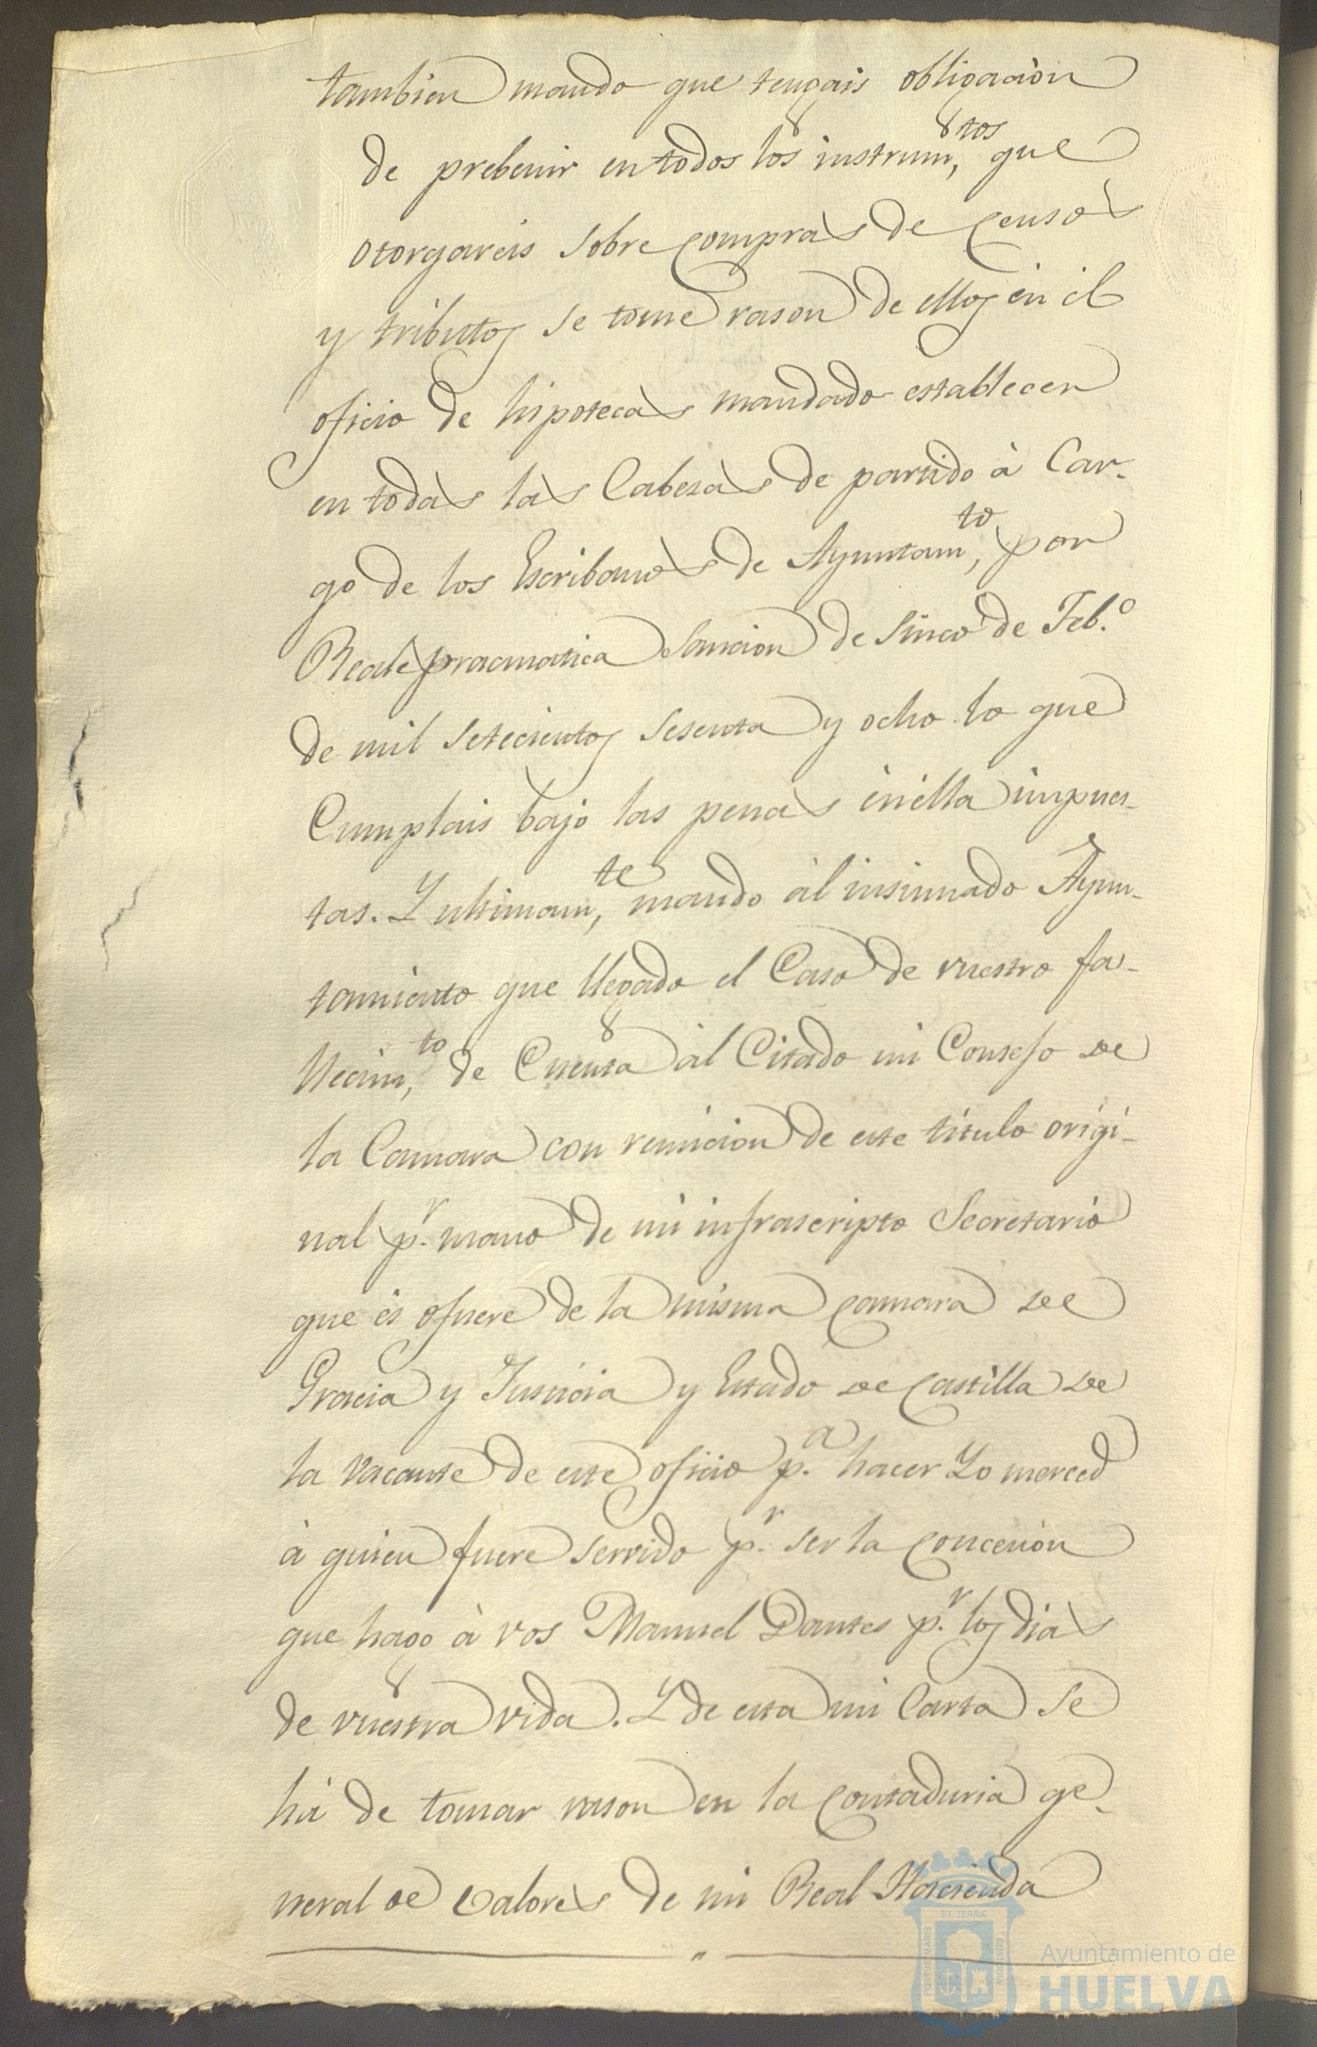 tambien mando que tengais obligacion
de prebenir en todos los instrum,tos que
otorgareis sobre compras de censos
y tributos se tome rason de ellos en el
oficio de hipotecas mandado establecer
en todas las Cabesas de partido à Car-
go de los Escribanos de Ayuntam,to por
Real pracmatica sancion de sinco de Feb.o
de mil setecientos sesenta y ocho lo que
Cumplais bajo las penas en ella impues-
tas. Y ultimam,te mando al insinuado Ayun-
tamiento que llegado el Caso de vuestro fa-
llecim,to de Cuenta al Citado mi Consejo de
la Camara con remicion de este titulo origi-
nal p.r mano de mi infrascripto Secretario
que és ofuere de la misma camara de
Gracia y Justicia y Estado de Castilla de
la vacante de este oficio p.a hacer Yo merced
à quien fuere servido p.r ser la concecion
que hago à vos Manuel Dantes p.r los dias
de vuestra vida. Y de esta mi Carta se
há de tomar rason en la contaduria ge-
neral de valores de mi Real Hacienda
Ayuntamiento de
HUELVA